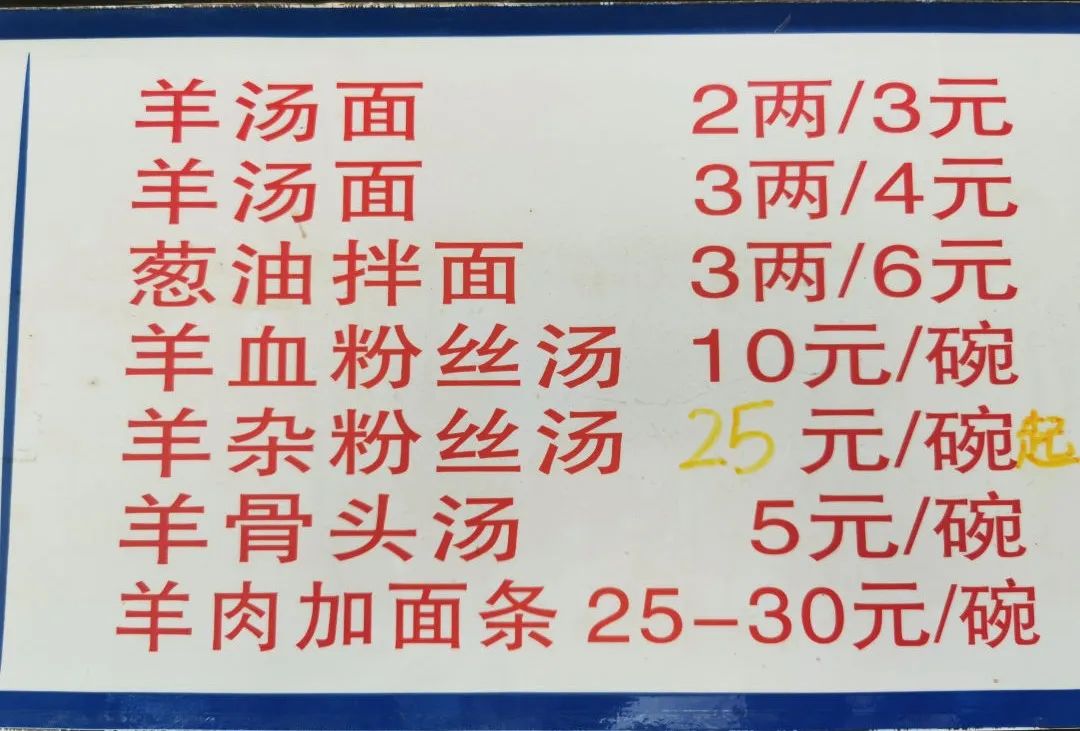 羊汤面 2两/3元
羊汤面 3两/4元
葱油拌面 3两/6元
羊血粉丝汤 10元/碗
羊杂粉丝汤 25元/碗起
羊骨头汤 5元/碗
羊肉加面条 25-30元/碗